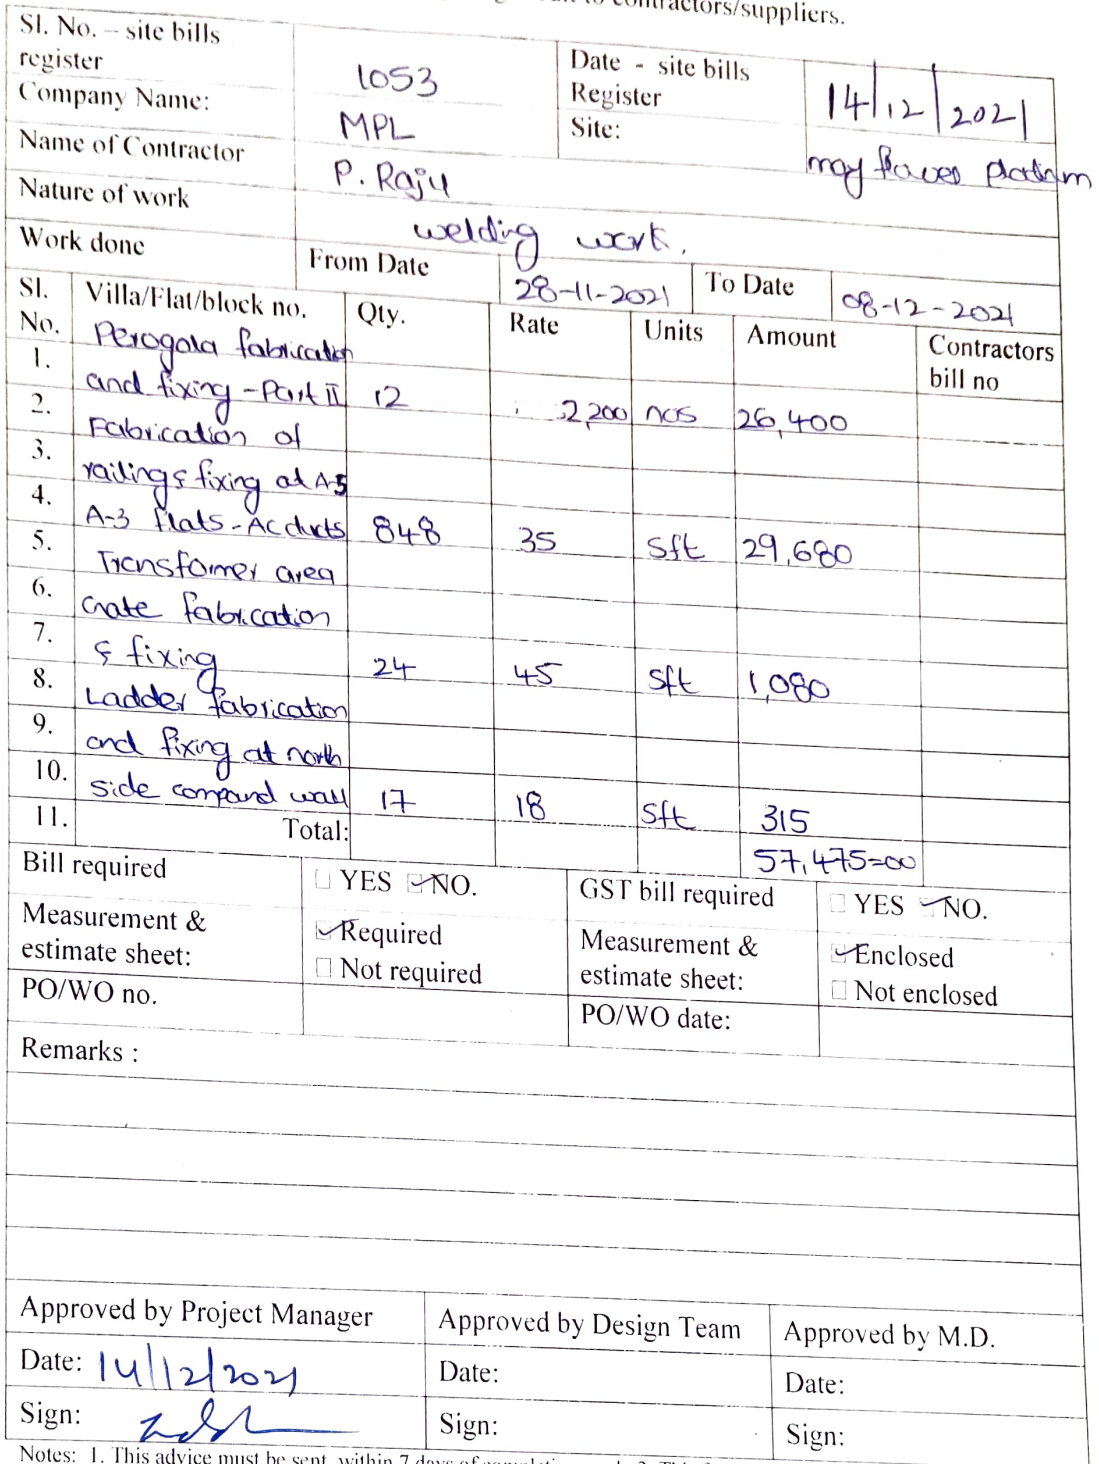 contractors/suppliers.
Sl. No. – site bills register 1053 Date - site bills Register 14/12/2021
Company Name: MPL Site: may flower platinm
Name of Contractor P. Raju
Nature of work welding work.
Work done From Date 28-11-2021 To Date 08-12-2021
Sl. No. Villa/Flat/block no. Qty. Rate Units Amount Contractors bill no
1. Perogala fabrication
2. and fixing - Part II 12 2,200 nos 26,400
3. Fabrication of
4. railing & fixing at A-5
5. A-3 flats - AC ducts 848 35 Sft 29,680
6. Transformer area
7. Grate fabrication
8. & fixing 24 45 Sft 1,080
9. Ladder fabrication
10. and fixing at north
11. side compand wall 17 18 Sft 315
Total: 57,475=00
Bill required YES NO. GST bill required YES NO.
Measurement & estimate sheet: Required Not required Measurement & estimate sheet: Enclosed Not enclosed
PO/WO no. PO/WO date:
Remarks :
Approved by Project Manager Approved by Design Team Approved by M.D.
Date: 14/12/2021 Date: Date:
Sign: Sign: Sign:
Notes: 1. This advice must be sent within 7 days of